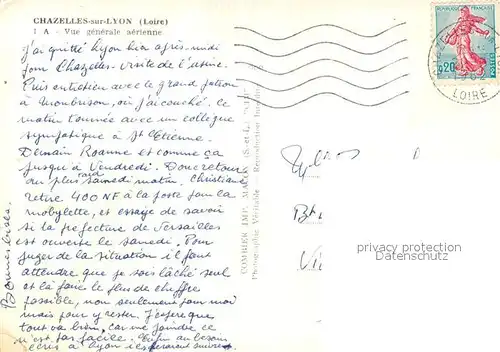 CHAZELLES-sur-LYON (Loire)
1 A - Vue générale aérienne
J'ai quitté Lyon hier après-midi
pour Chazelles - visite de l'usine.
Puis entretien avec le grand patron
à Montbrison, où j'ai couché. Ce
matin tournée avec un collègue
sympathique à St Etienne.
Demain Roanne et comme ça
jusqu'à Vendredi. Donc retour
au plus tard samedi matin. Christiane
retire 400 NF à la poste pour la
mobylette, et essaye de savoir
si la préfecture de Versailles
est ouverte le samedi. Pour
juger de la situation il faut
attendre que je sois lâché seul
et là faire le plus de chiffre
possible, non seulement pour moi
mais pour y rester. J'espère que
tout va bien, car me joindre ce
n'est pas facile. Enfin au besoin
écris à Lyon ils feront suivre.
Bonnes bises.
COMBIER IMP. MACON (S.-et-L.)
Photographie Véritable - Reproduction Interdite
0,20
POSTES
LOIRE
privacy protection
Datenschutz